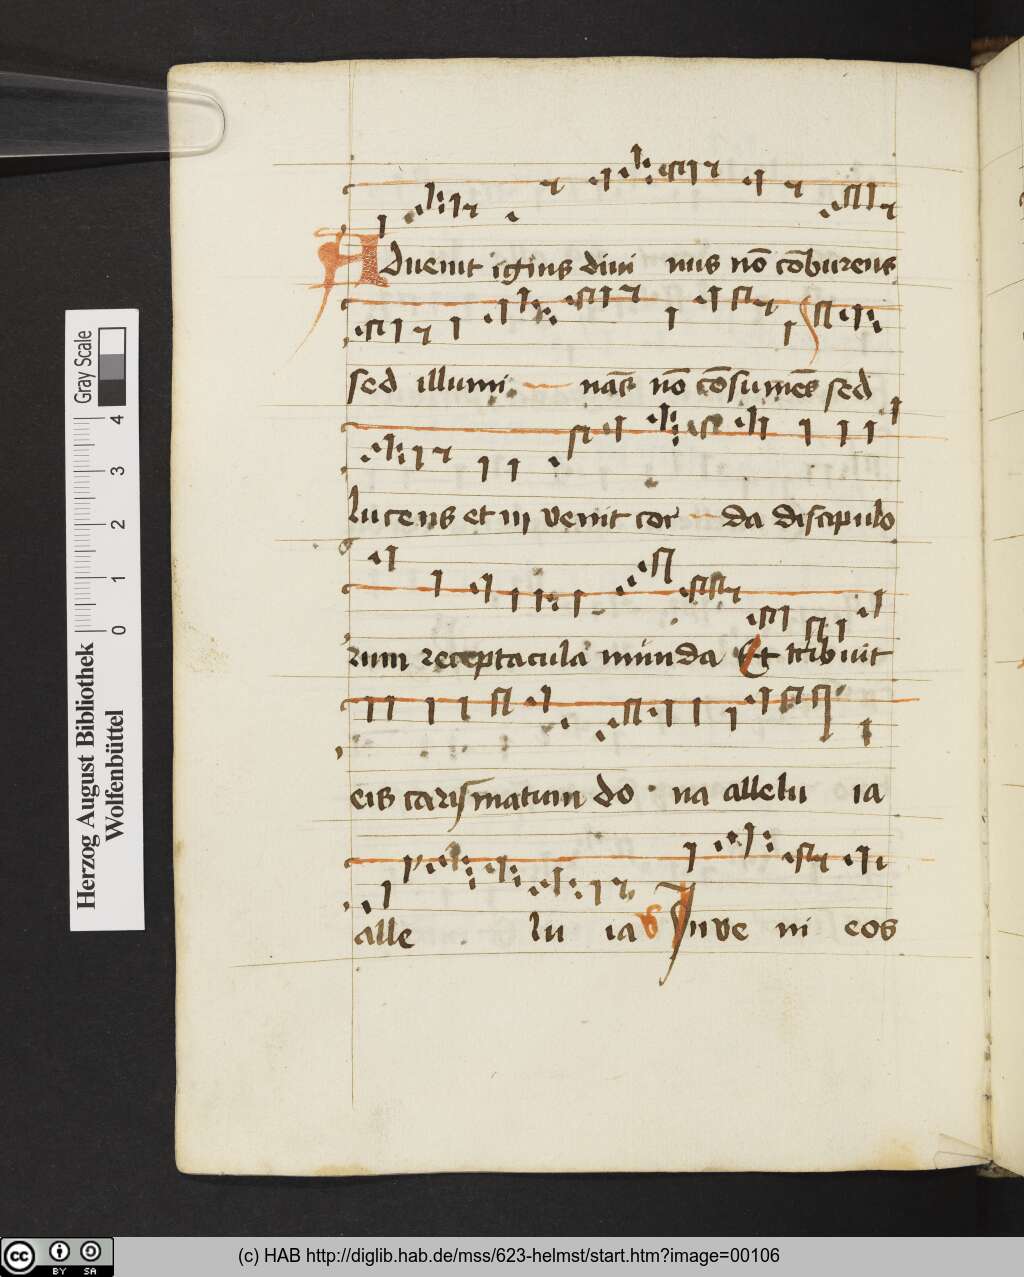 Advenit ignis divi nus nō cōburens
sed illumi nās nō cōsumēs sed
lucens et in venit cor da discipulo
rum receptacula munda Et tribuit
eis carismatum do na allelu ia
alle lu ia V Inve ni eos
Gray Scale
0 1 2 3 4
Herzog August Bibliothek
Wolfenbüttel
cc BY SA
(c) HAB http://diglib.hab.de/mss/623-helmst/start.htm?image=00106